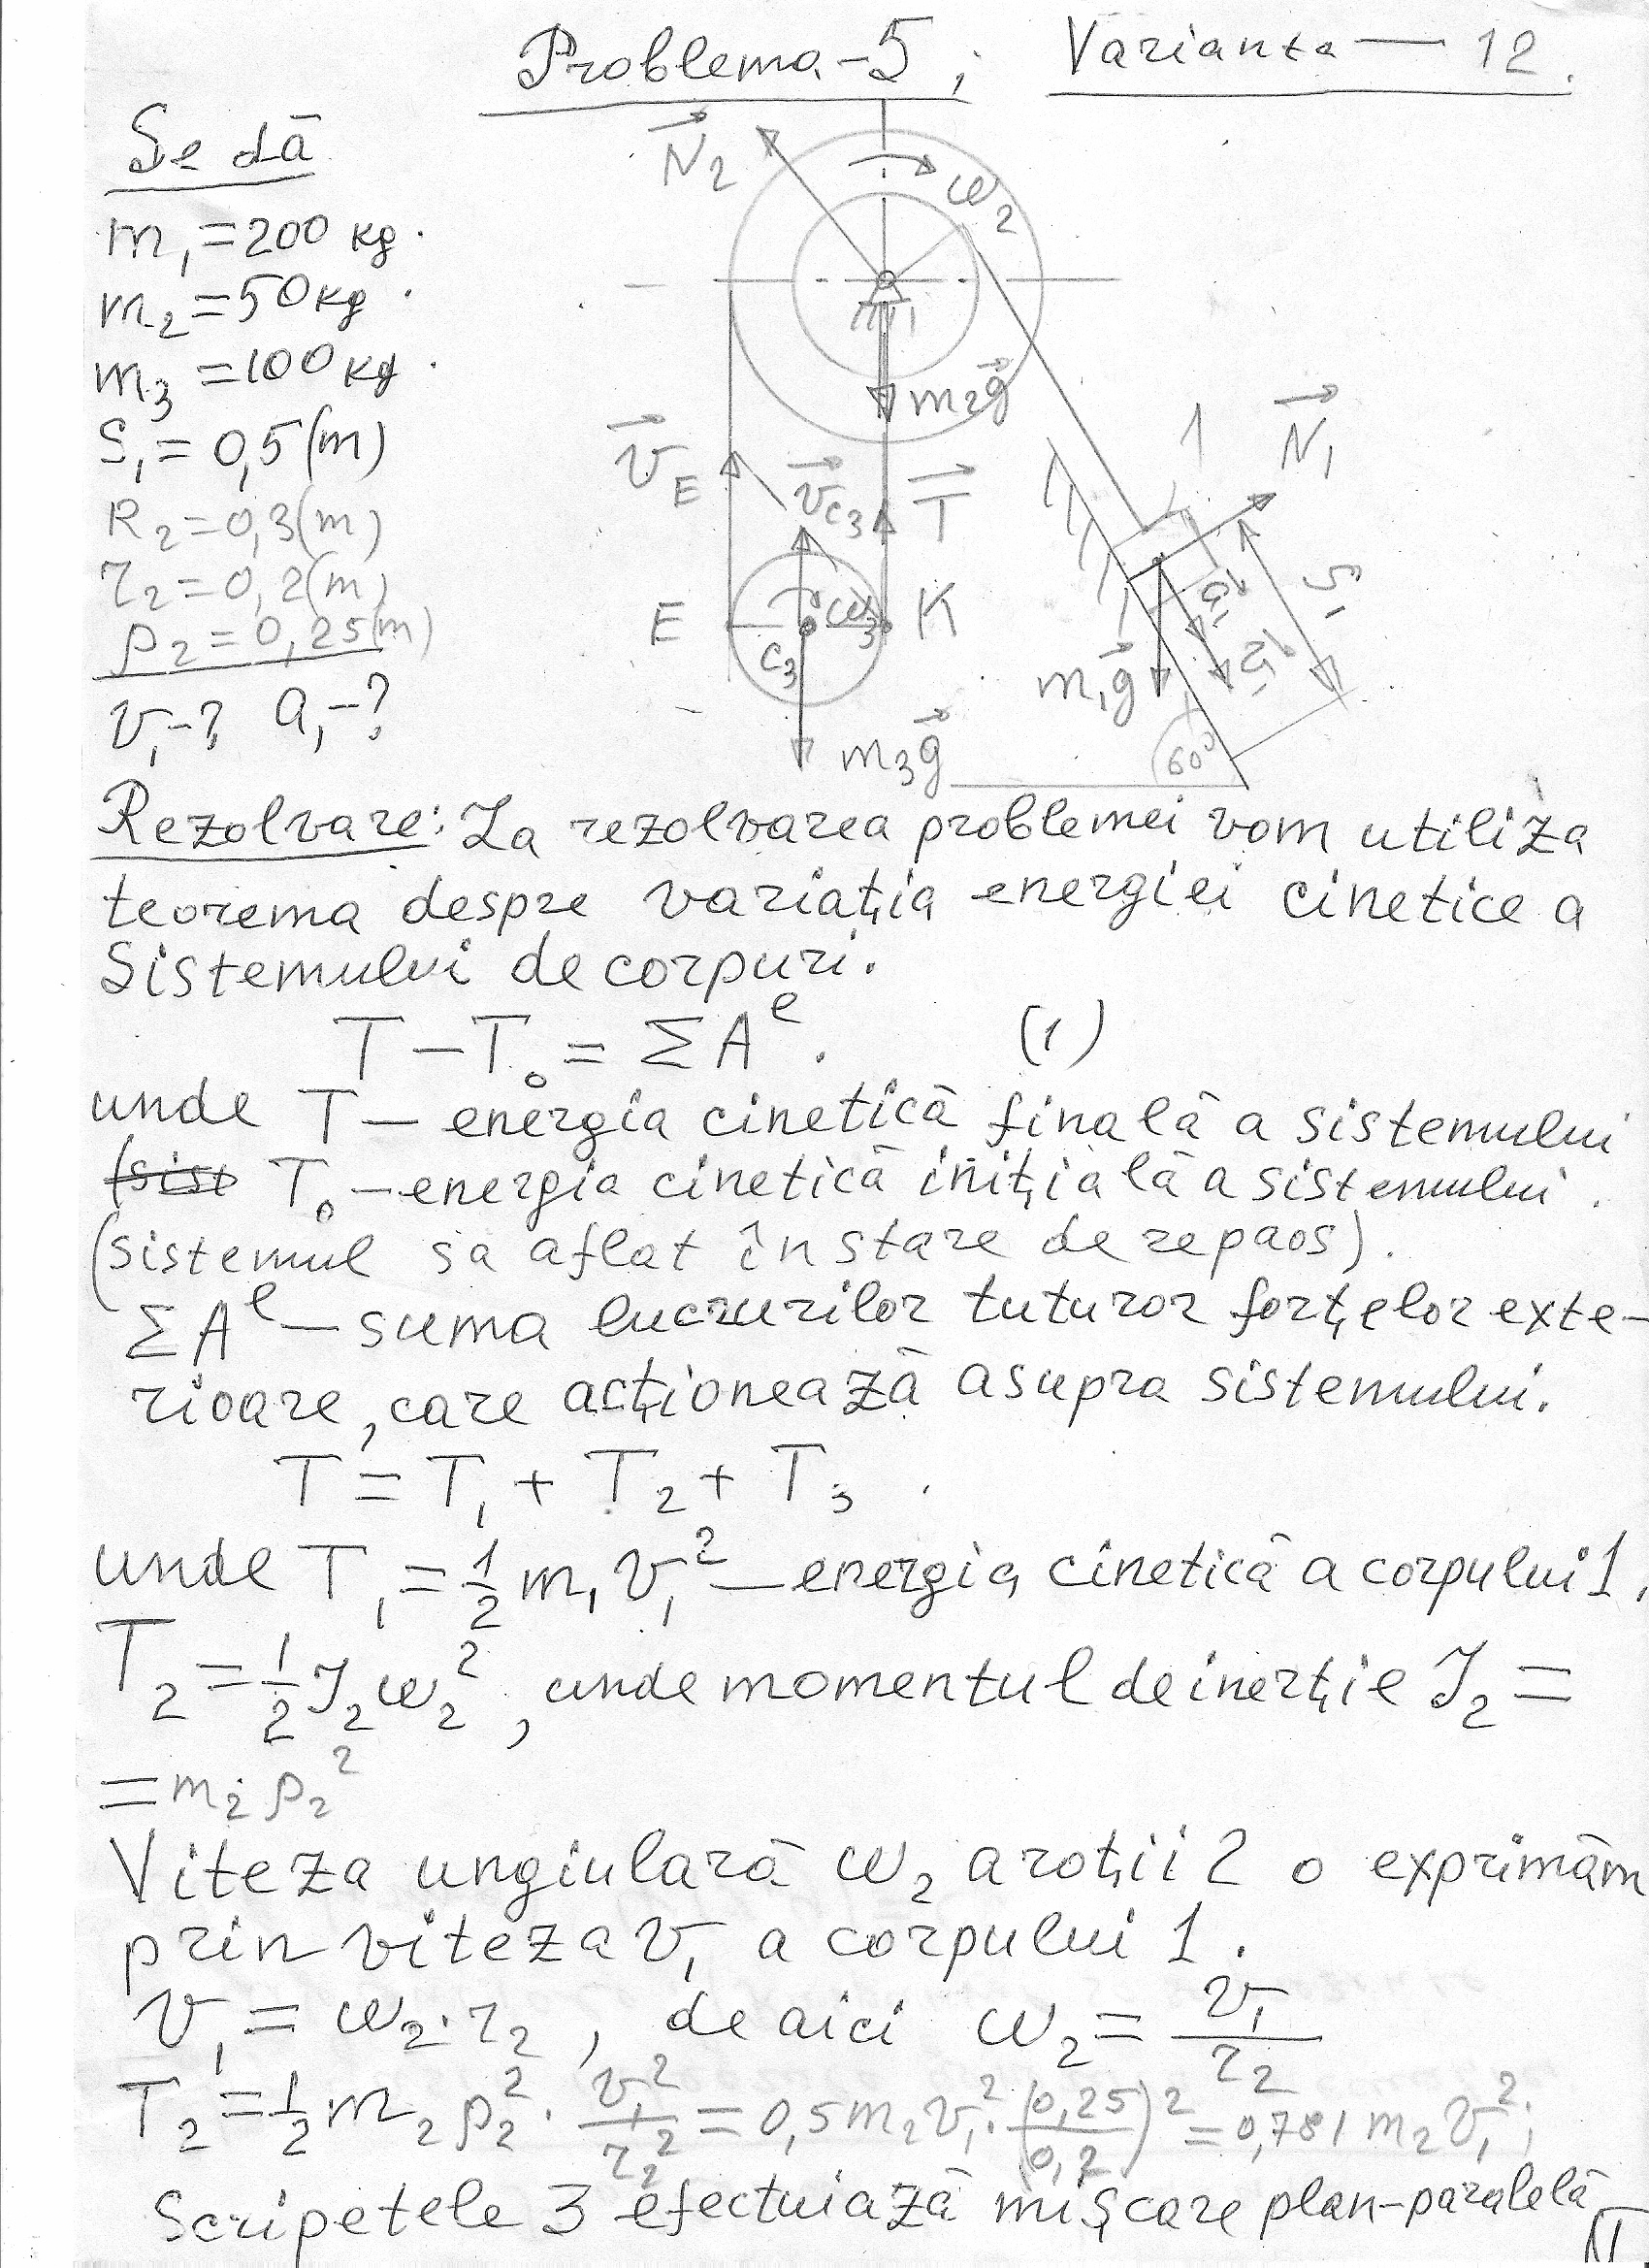 Problema-5; Varianta — 12.
Se dă
m₁ = 200 kg.
m₂ = 50 kg.
m₃ = 100 kg.
S₁ = 0,5 (m)
R₂ = 0,3 (m)
r₂ = 0,2 (m)
ρ₂ = 0,25 (m)
v₁-? a₁-?
N₂
ω₂
m₂g
N₁
1
v_E
E
v_C₃
T
S₁
E
ω₃
K
C₃
m₁g
60°
m₃g
Rezolvare: La rezolvarea problemei vom utiliza
teorema despre variația energiei cinetice a
Sistemului de corpuri.
T – T₀ = ΣAᵉ. (1)
unde T – energia cinetică finală a sistemului
T₀ – energia cinetică inițială a sistemului.
(sistemul sa aflat în stare de repaos).
ΣAᵉ – suma lucrurilor tuturor forțelor exte-
rioare, care acționează asupra sistemului.
T = T₁ + T₂ + T₃.
unde T₁ = 1/2 m₁ v₁² – energia cinetică a corpului 1,
T₂ = 1/2 J₂ ω₂², unde momentul de inerție J₂ =
= m₂ ρ₂²
Viteza ungiulară ω₂ a roții 2 o exprimăm
prin viteza v₁ a corpului 1.
v₁ = ω₂·r₂, de aici ω₂ = v₁/r₂
T₂ = 1/2 m₂ ρ₂² · v₁²/r₂² = 0,5 m₂ v₁² · (0,25/0,2)² = 0,781 m₂ v₁²;
Scripetele 3 efectuiază mișcare plan-paralelă